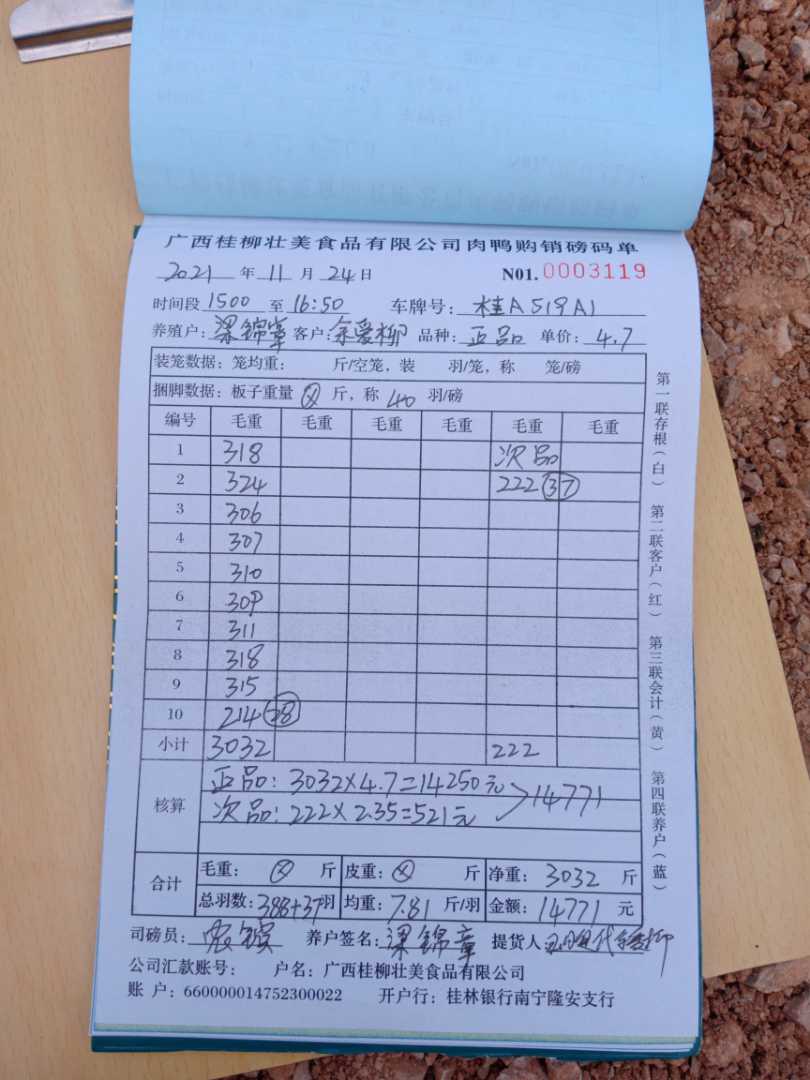 广西桂柳壮美食品有限公司肉鸭购销磅码单
2021 年 11 月 24 日 N01. 0003119
时间段 1500 至 16:50 车牌号: 桂A519A1
养殖户: 梁锦章 客户: 余爱柳 品种: 正品 单价: 4.7
装笼数据: 笼均重: 斤/空笼, 装 羽/笼, 称 笼/磅
捆脚数据: 板子重量 ⊗ 斤, 称 40 羽/磅
编号 毛重 毛重 毛重 毛重 毛重 毛重
1 318 次品
2 324 222 37
3 306
4 307
5 310
6 309
7 311
8 318
9 315
10 214 28
小计 3032 222
核算
正品: 3032×4.7=14250元
14771
次品: 222×2.35=521元
合计
毛重: ⊗ 斤 皮重: ⊗ 斤 净重: 3032 斤
总羽数: 388+37羽 均重: 7.81 斤/羽 金额: 14771 元
司磅员: 养户签名: 梁锦章 提货人
公司汇款账号: 户名: 广西桂柳壮美食品有限公司
账 户: 660000014752300022 开户行: 桂林银行南宁隆安支行
第一联存根(白) 第二联客户(红) 第三联会计(黄) 第四联养户(蓝)